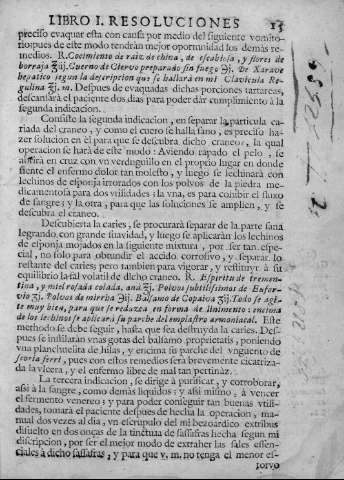 LIBRO I. RESOLUCIONES 15
preciso evaquar esta con causa por medio del siguiente vomito-
rio: pues de este modo tendràn mejor oportunidad los demàs re-
medios. R. Cocimiento de raiz de china, de escabiosa, y flores de
borraja ℥iij. Cuerno de Ciervo preparado sin fuego ℈j. De Xarave
hepatico segun la descripcion que se hallarà en mi Clavicula Re-
gulina ℥j. m. Despues de evaquadas dichas porciones tartareas,
descansarà el paciente dos dias para poder dàr cumplimiento à la
segunda indicacion.
Consiste la segunda indicacion, en separar la particula ca-
riada del craneo, y como el cuero se halla sano, es preciso ha-
zer solucion en èl para que se descubra dicho craneo, la qual
operacion se harà de este modo: Aviendo rapado el pelo, se
abrirà en cruz con vn verduguillo en el proprio lugar en donde
siente el enfermo dolor tan molesto, y luego se lechinarà con
lechinos de esponja irrotados con los polvos de la piedra me-
dicamentosa para dos vtilidades: la vna, es para cohibir el fluxo
de sangre; y la otra, para que las soluciones se amplien, y se
descubra el craneo.
Descubierta la caries, se procurarà separar de la parte sana
legrando, con grande suavidad, y luego se aplicaràn los lechinos
de esponja mojados en la siguiente mixtura, por ser tan espe-
cial, no solo para obtundir el accido corrosivo, y separar lo
restante del caries pero tambien para vigorar, y restituyr à su
equilibrio la sal volatil de dicho craneo. R. Espiritu de tremen-
tina, y miel rosada colada, anà ℥j. Polvos subtilissimos de Eufor-
vio ʒj. Polvos de mirrha ℈ij. Balsamo de Copaiva ℥ij. Todo se agi-
te muy bien, para que se reduzca en forma de linimento: encima
de los lechinos se aplicarà su parche del emplastro armoniatal. Este
methodo se debe seguir, hasta que sea destruyda la caries. Des-
pues se instilaràn vnas gotas del balsamo proprietatis, poniendo
vna planchuelita de hilas, y encima su parche del vnguento de
scoria ferri, pues con estos remedios serà brevemente cicatriza-
da la vlcera, y el enfermo libre de mal tan pertinàz.
La tercera indicacion, se dirige à purificar, y corroborar,
assi à la sangre, como demàs liquidos; y assi mismo, à vencer
el fermento venereo; y para poder conseguir tan buenas vtili-
dades, tomarà el paciente despues de hecha la operacion, ma-
ñana dos vezes al dia, vn escrupulo del mi bezoardico extribus
disuelto en dos onças de la tinctura de sassafràs hecha segun mi
discripcion, por ser el mejor modo de extraher las sales essen-
ciales à dicho sassafràs, y para que v. m. no tenga el menor es-
torvo